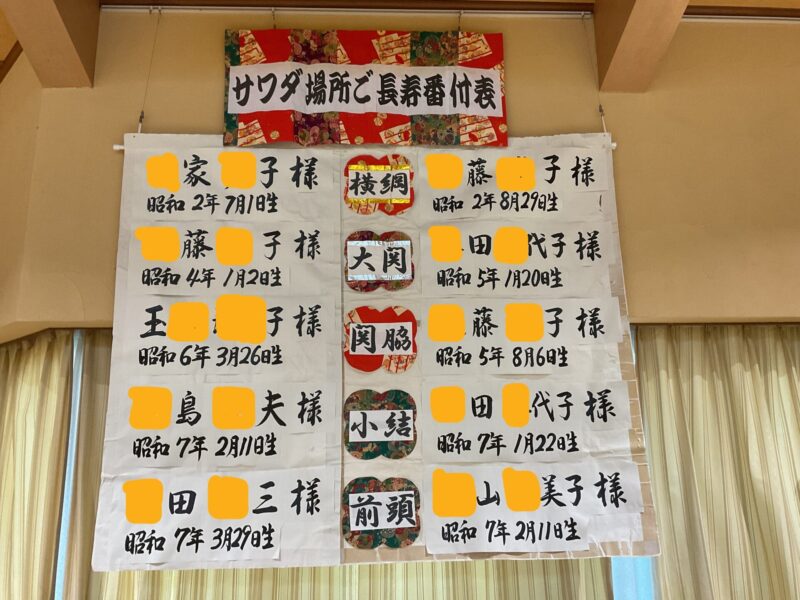 サワダ場所ご長寿番付表
家 子 様
昭和 2年 7月1日生
横綱
藤 子 様
昭和 2年 8月29日生
藤 子 様
昭和 4年 1月2日生
大関
田 代子 様
昭和 5年 1月20日生
玉 子 様
昭和 6年 3月26日生
関脇
藤 子 様
昭和 5年 8月6日生
島 夫 様
昭和 7年 2月11日生
小結
田 代子 様
昭和 7年 1月22日生
田 三 様
昭和 7年 3月29日生
前頭
山 美子 様
昭和 7年 2月11日生